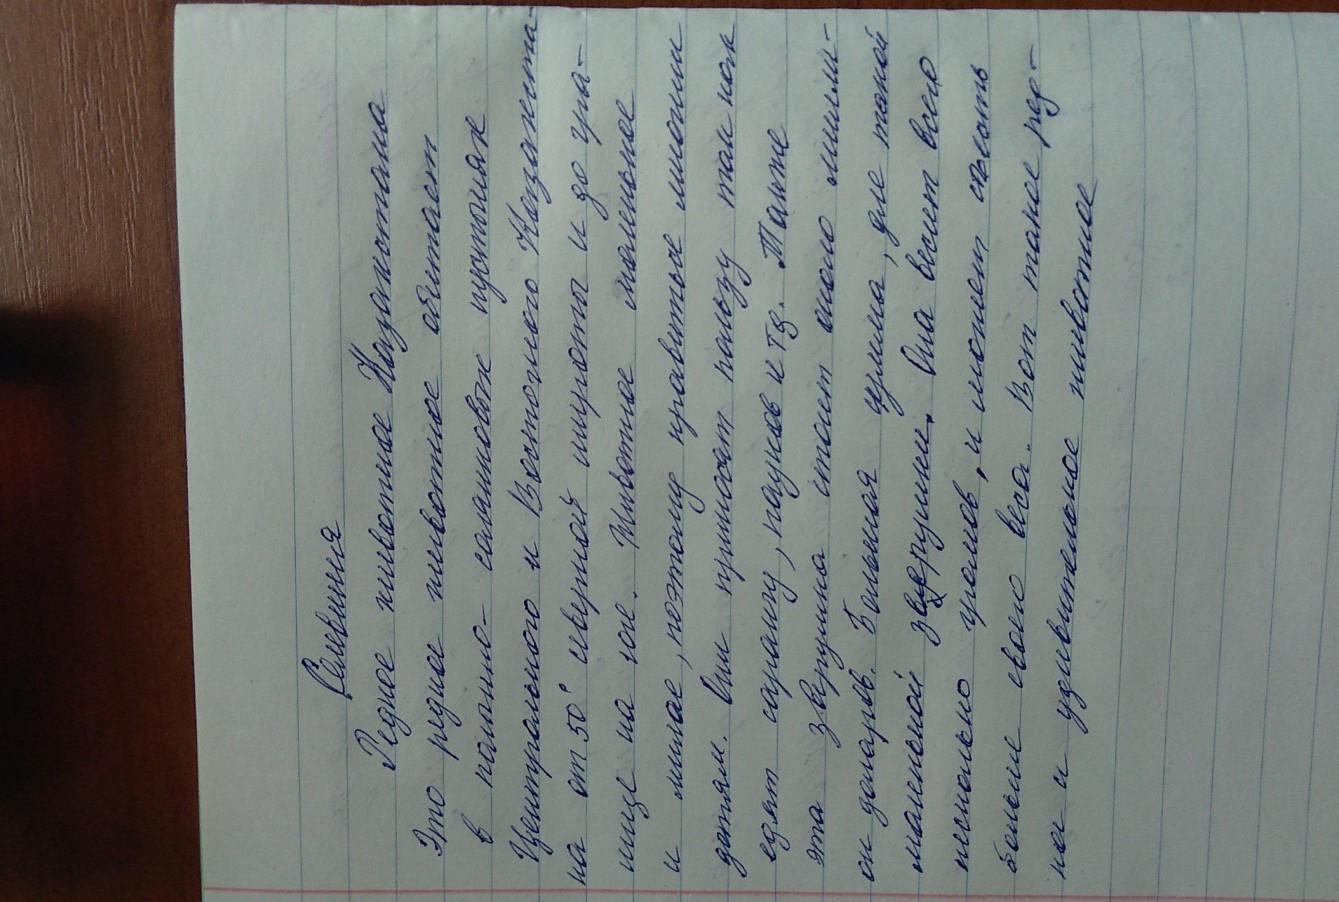 Селевиния
Редное животное Казахстана
Это редное животное обитает
в полино- салановых пустынях
Центрального и Восточного Казахста-
на от 50° северной широты и до гра-
нице на юге. Животное маленькое
и милое, поэтому нравиться многим
детям. Они приносят пользу так как
едят саранчу, пауков и тд. Также
эта зверушка стоит около милли-
он доларов. Большая сумма, для такой
маленькой зверушки. Она весит всего
несколько грамов, и может съесть
больше свого веса. Вот такое ред-
кое и удивительное животное